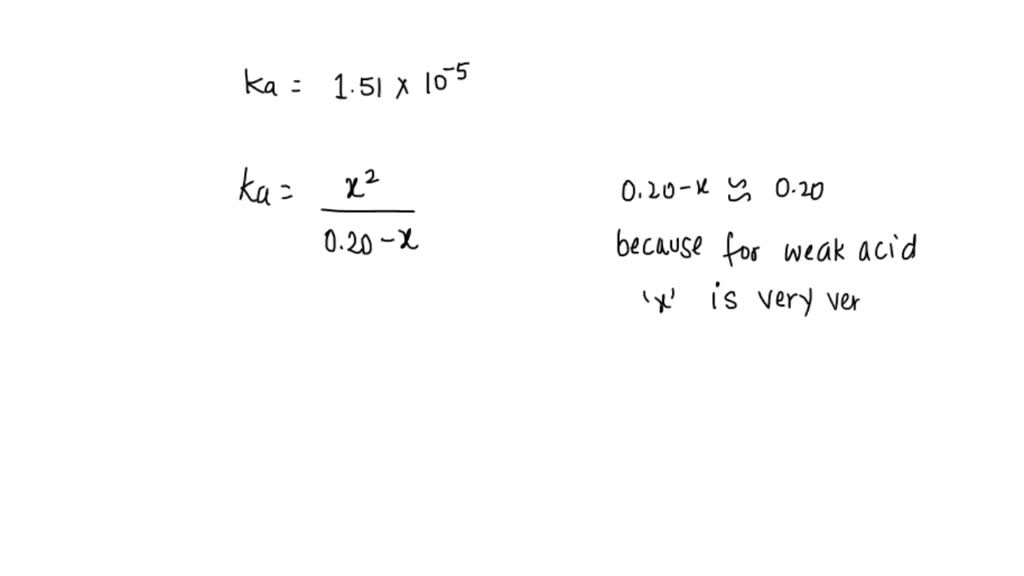 ka = 1.51 x 10⁻⁵
ka = x² / 0.20 - x
0.20 - x ≈ 0.20
because for weak acid
'x' is very ver